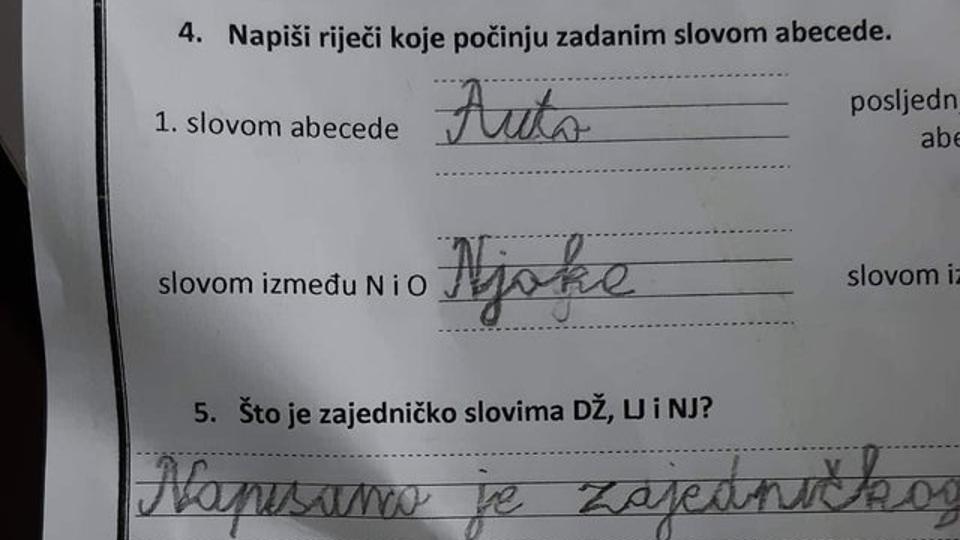 4. Napiši riječi koje počinju zadanim slovom abecede.
1. slovom abecede Auto posljednj
abe
slovom između N i O Njoke slovom iz
5. Što je zajedničko slovima DŽ, LJ i NJ?
Napisano je zajedničkog